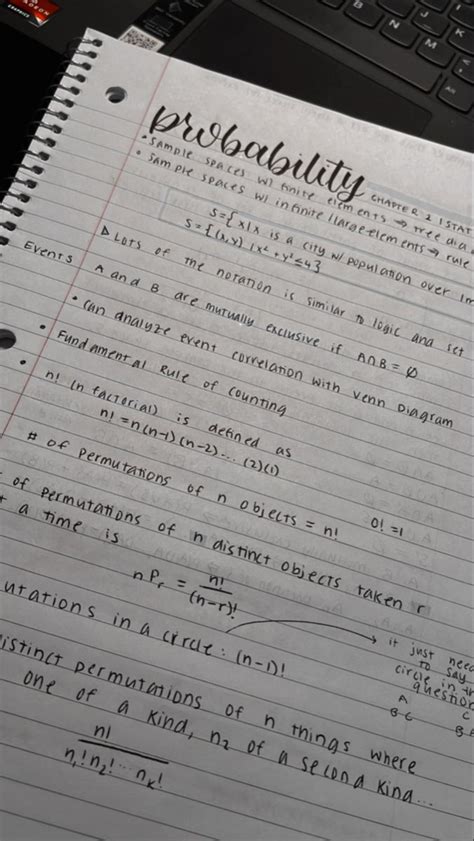 RADEON
GRAPHICS
probability
CHAPTER 2 | STAT
• SAMPLE SPACES W/ finite elements → tree dia
• SAMPLE SPACES W/ infinite / large elements → rule
S = { x | x is a city w/ population over 1m
S = { (x, y) | x² + y² ≤ 4 }
Δ Lots of the notation is similar to logic and set
Events
A and B are mutually exclusive if A ∩ B = Ø
• can analyze event correlation with Venn Diagram
• Fundamental Rule of Counting
• n! (n factorial) is defined as
n! = n(n-1)(n-2)... (2)(1)
0! = 1
# of permutations of n objects = n!
of permutations of n distinct objects taken r
a time is
nPr = n! / (n-r)!
utations in a circle : (n-1)!
it just need
to say
circle in th
question
A
B C
C
B
istinct permutations of n things where
one of a kind, n₂ of a second kind...
n! / n₁! n₂! ... nₖ!